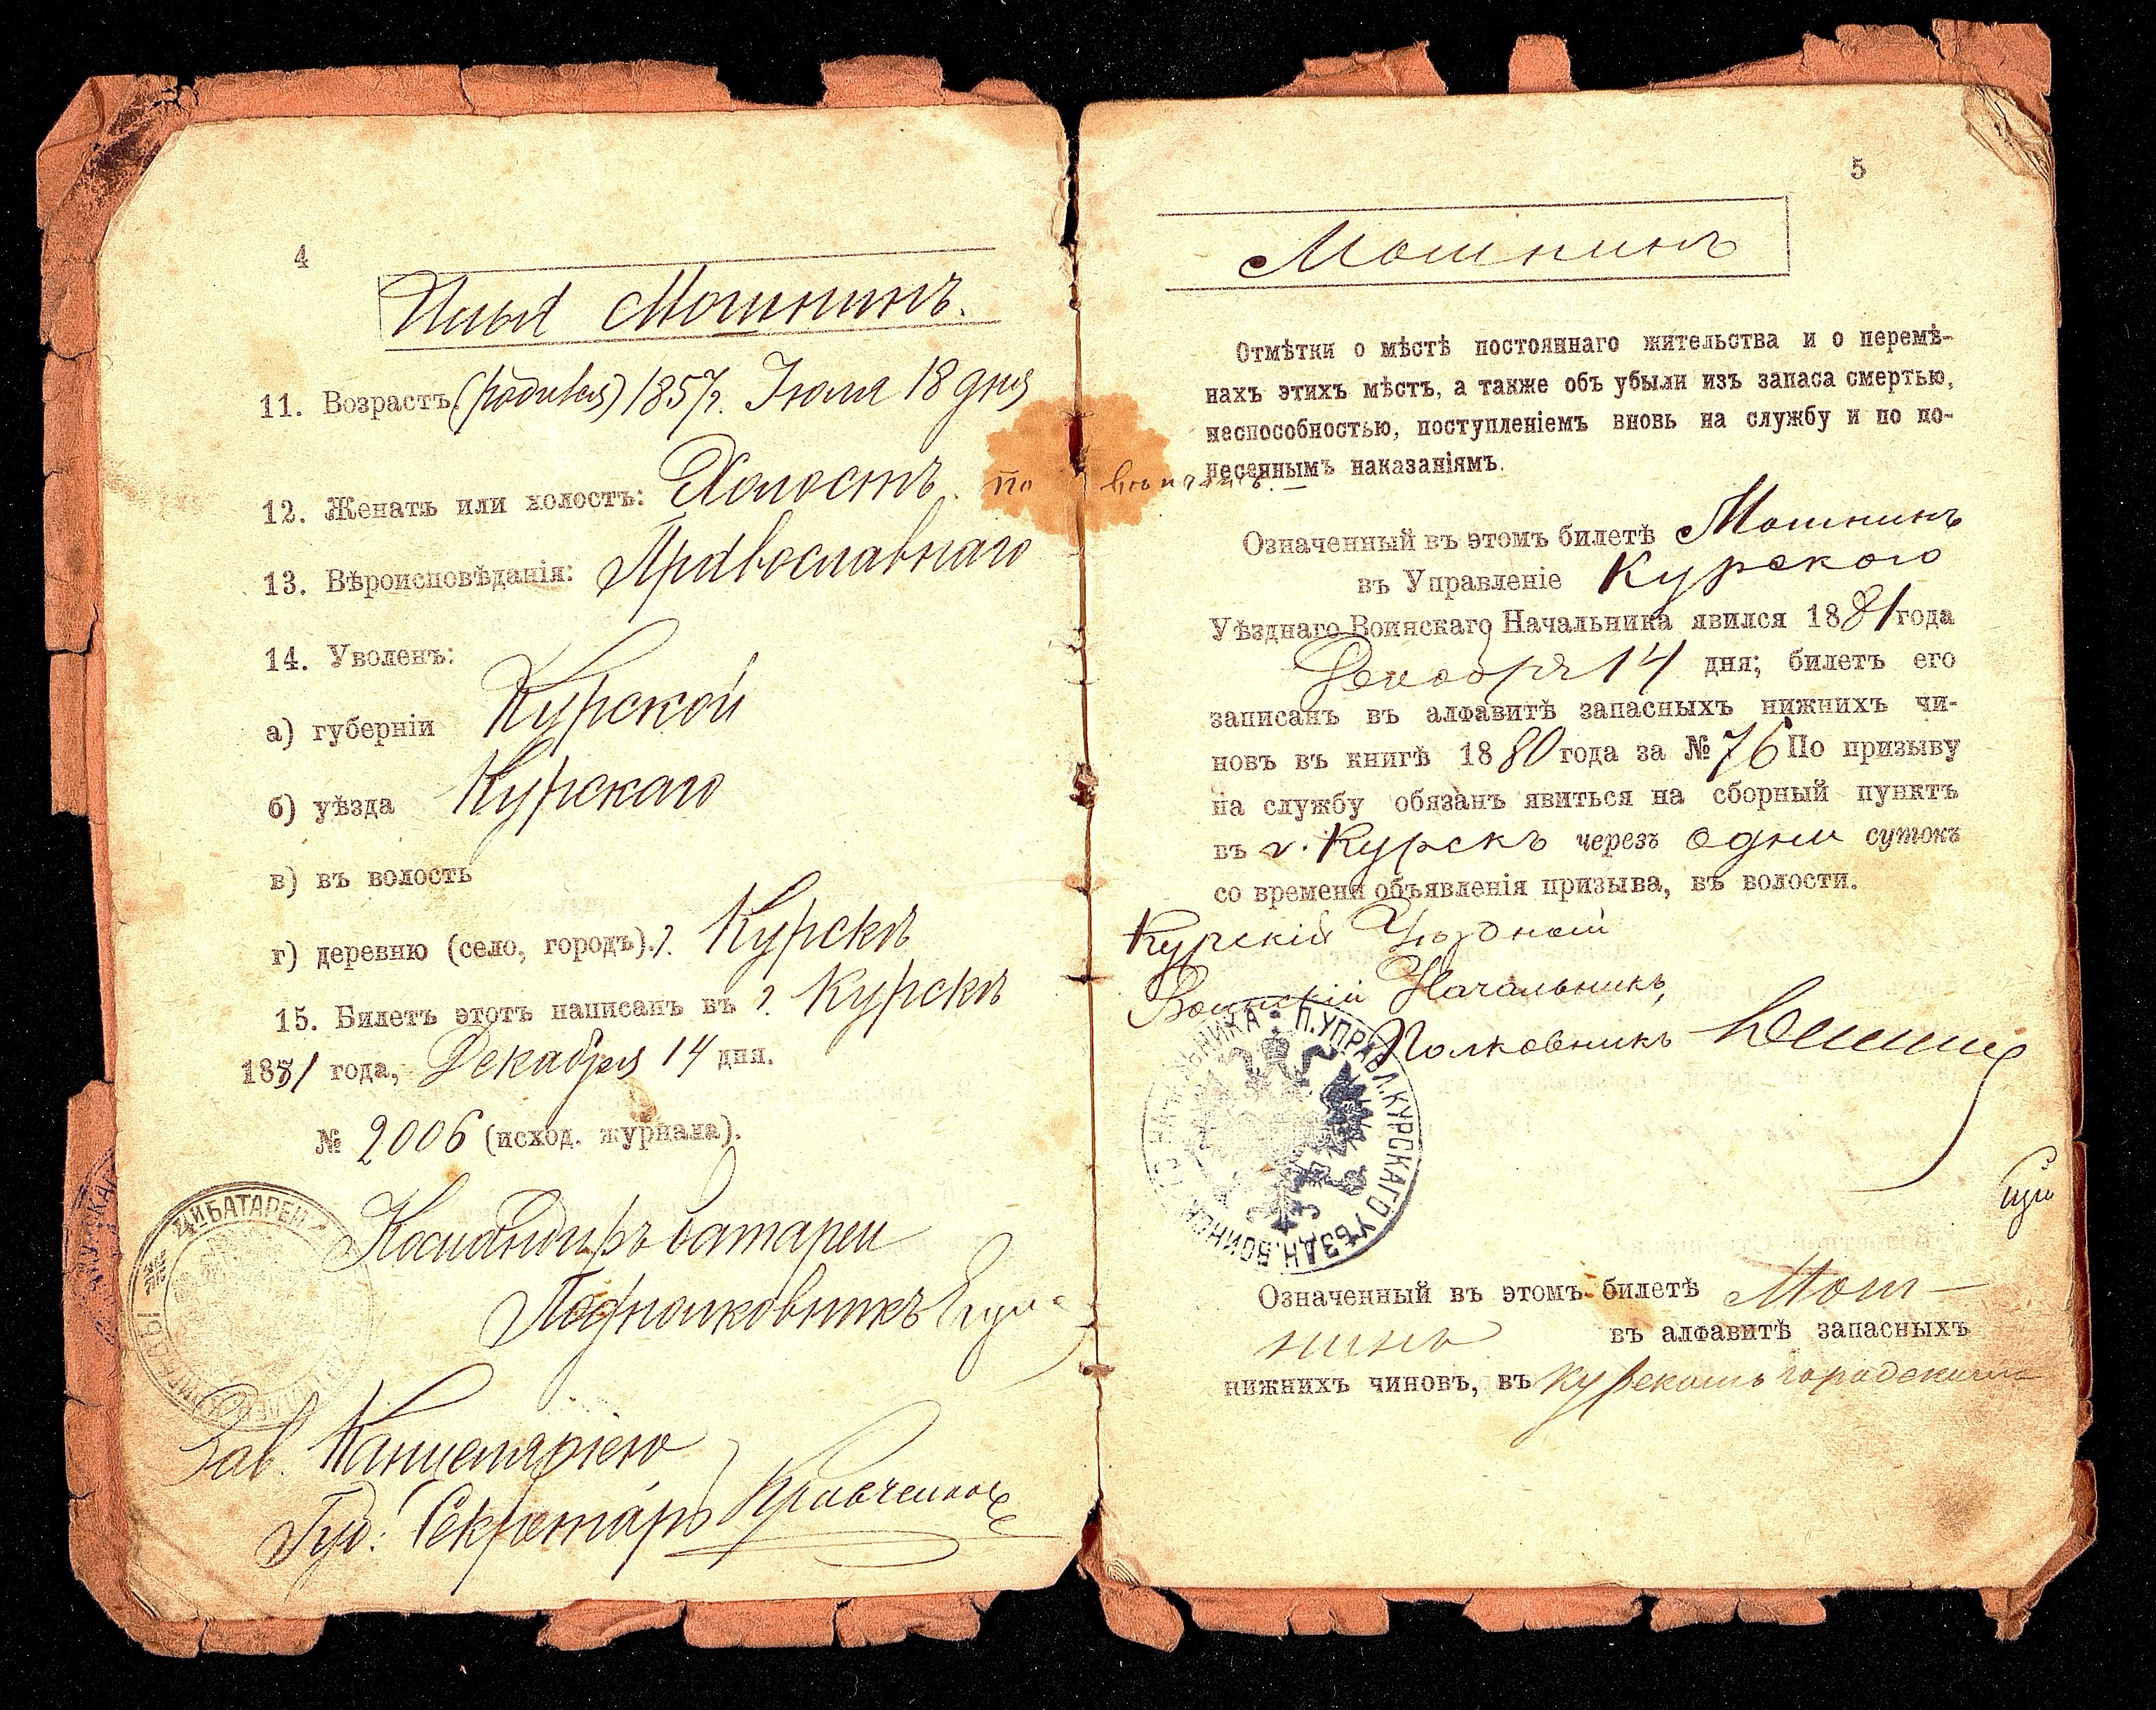 4
Илья Мошнинъ.
11. Возрастъ. (родился) 1857 г. Іюля 18 дня
12. Женатъ или холостъ: Холостъ. по
13. Вѣроисповѣданія: Православнаго
14. Уволенъ:
а) губерніи Курской
б) уѣзда Курскаго
в) въ волость
г) деревню (село, городъ). г. Курскъ
15. Билетъ этотъ написанъ въ г. Курскѣ
1881 года, Декабря 14 дня.
№ 2006 (исход. журнала).
БАТАРЕИ
Командиръ батареи
Подполковникъ
Зав. Канцеляріею
Губ. Секретарь Кравченко
5
Мошнинъ
Отмѣтки о мѣстѣ постояннаго жительства и о перемѣ-
нахъ этихъ мѣстъ, а также объ убыли изъ запаса смертью,
неспособностью, поступленіемъ вновь на службу и по по-
несеннымъ наказаніямъ.
Означенный въ этомъ билетѣ Мошнинъ
въ Управленіе Курскаго
Уѣзднаго Воинскаго Начальника явился 1881 года
Декабря 14 дня; билетъ его
записанъ въ алфавитѣ запасныхъ нижнихъ чи-
новъ въ книгѣ 1880 года за № 76 По призыву
на службу обязанъ явиться на сборный пунктъ
въ г. Курскъ черезъ одни сутокъ
со времени объявленія призыва, въ волости.
Курскій Уѣздный
Воинскій Начальникъ,
Полковникъ
П. УПРАВЛ. КУРСКАГО УѢЗДН. ВОИНСКАГО НАЧАЛЬНИКА
Означенный въ этомъ билетѣ Мош-
нинъ въ алфавитѣ запасныхъ
нижнихъ чиновъ, въ Курскомъ городскомъ